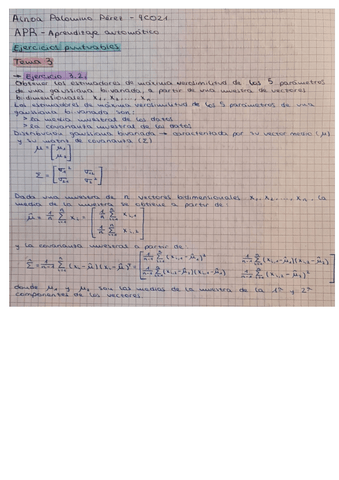 Ainoa Palomino Pérez - 4CO21
APR - Aprendizaje automático
Ejercicios puntuables
Tema 3
→ Ejercicio 3.2.
Obtener los estimadores de máxima verosimilitud de los 5 parámetros
de una gaussiana bi-variada, a partir de una muestra de vectores
bi-dimensionales x₁, x₂, ..., xₙ
Los estimadores de máxima verosimilitud de los 5 parámetros de una
gaussiana bi-variada son:
- La media muestral de los datos
- La covarianza muestral de los datos
Distribución gaussiana bivariada → caracterizada por su vector medio (μ)
y su matriz de covarianza (Σ)
μ = [μ₁ μ₂]
Dada una muestra de n vectores bidimensionales x₁, x₂, ..., xₙ, la
media de la muestra se obtiene a partir de:
y la covarianza muestral a partir de:
donde μ₁ y μ₂ son las medias de la muestra de la 1ª y 2ª
componentes de los vectores.